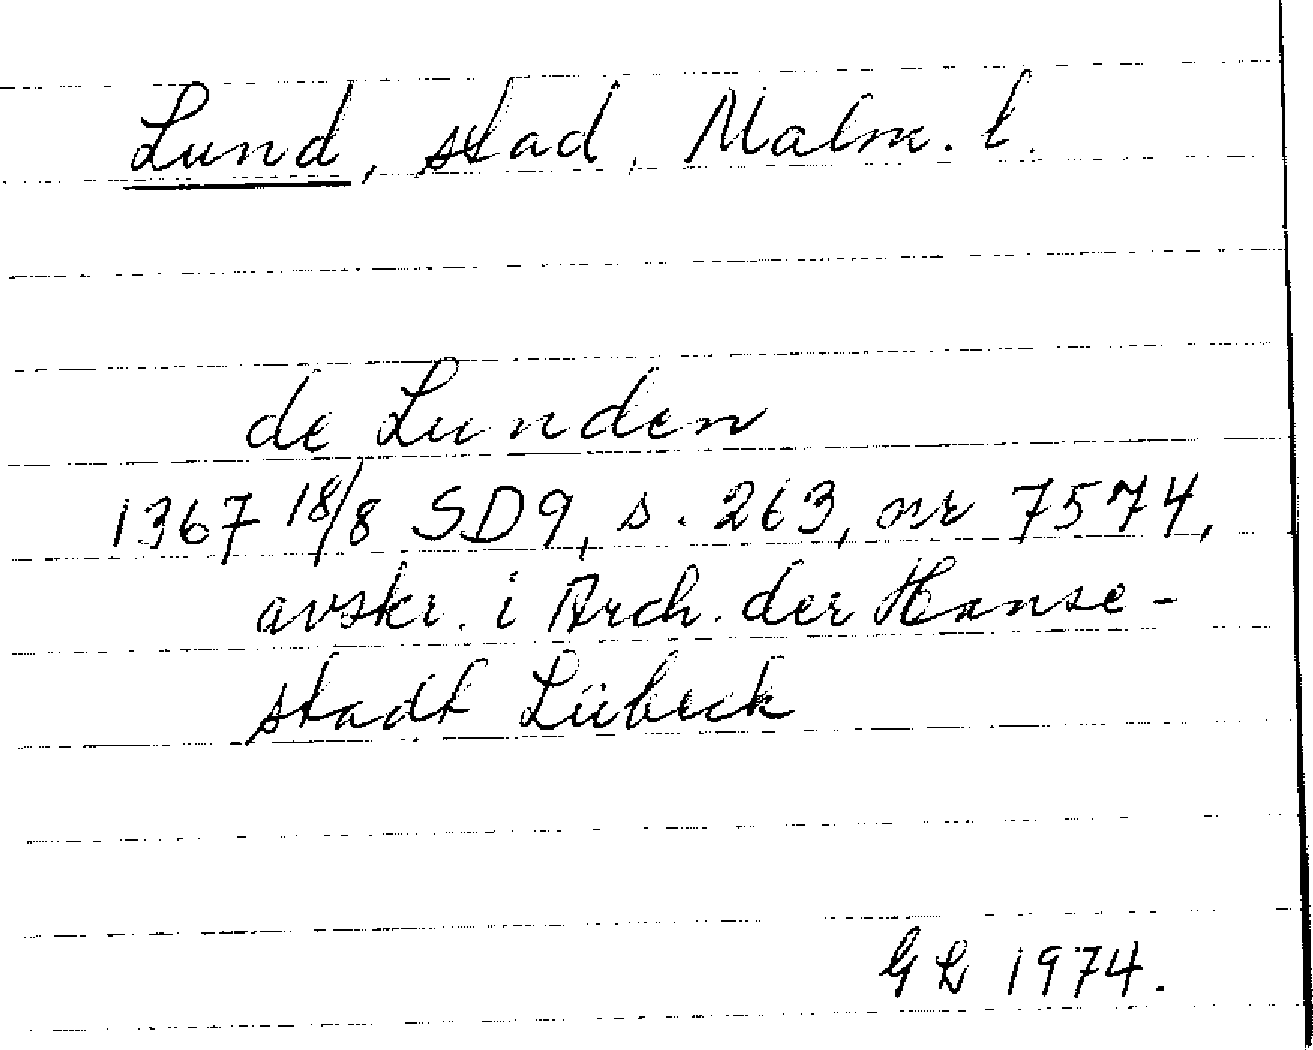 Lund, stad, Malm. l.
de Lunden
1367 18/8 SD9, s. 263, nr 7574,
avskr. i Arch. der Hanse-
stadt Lübeck
GL 1974.